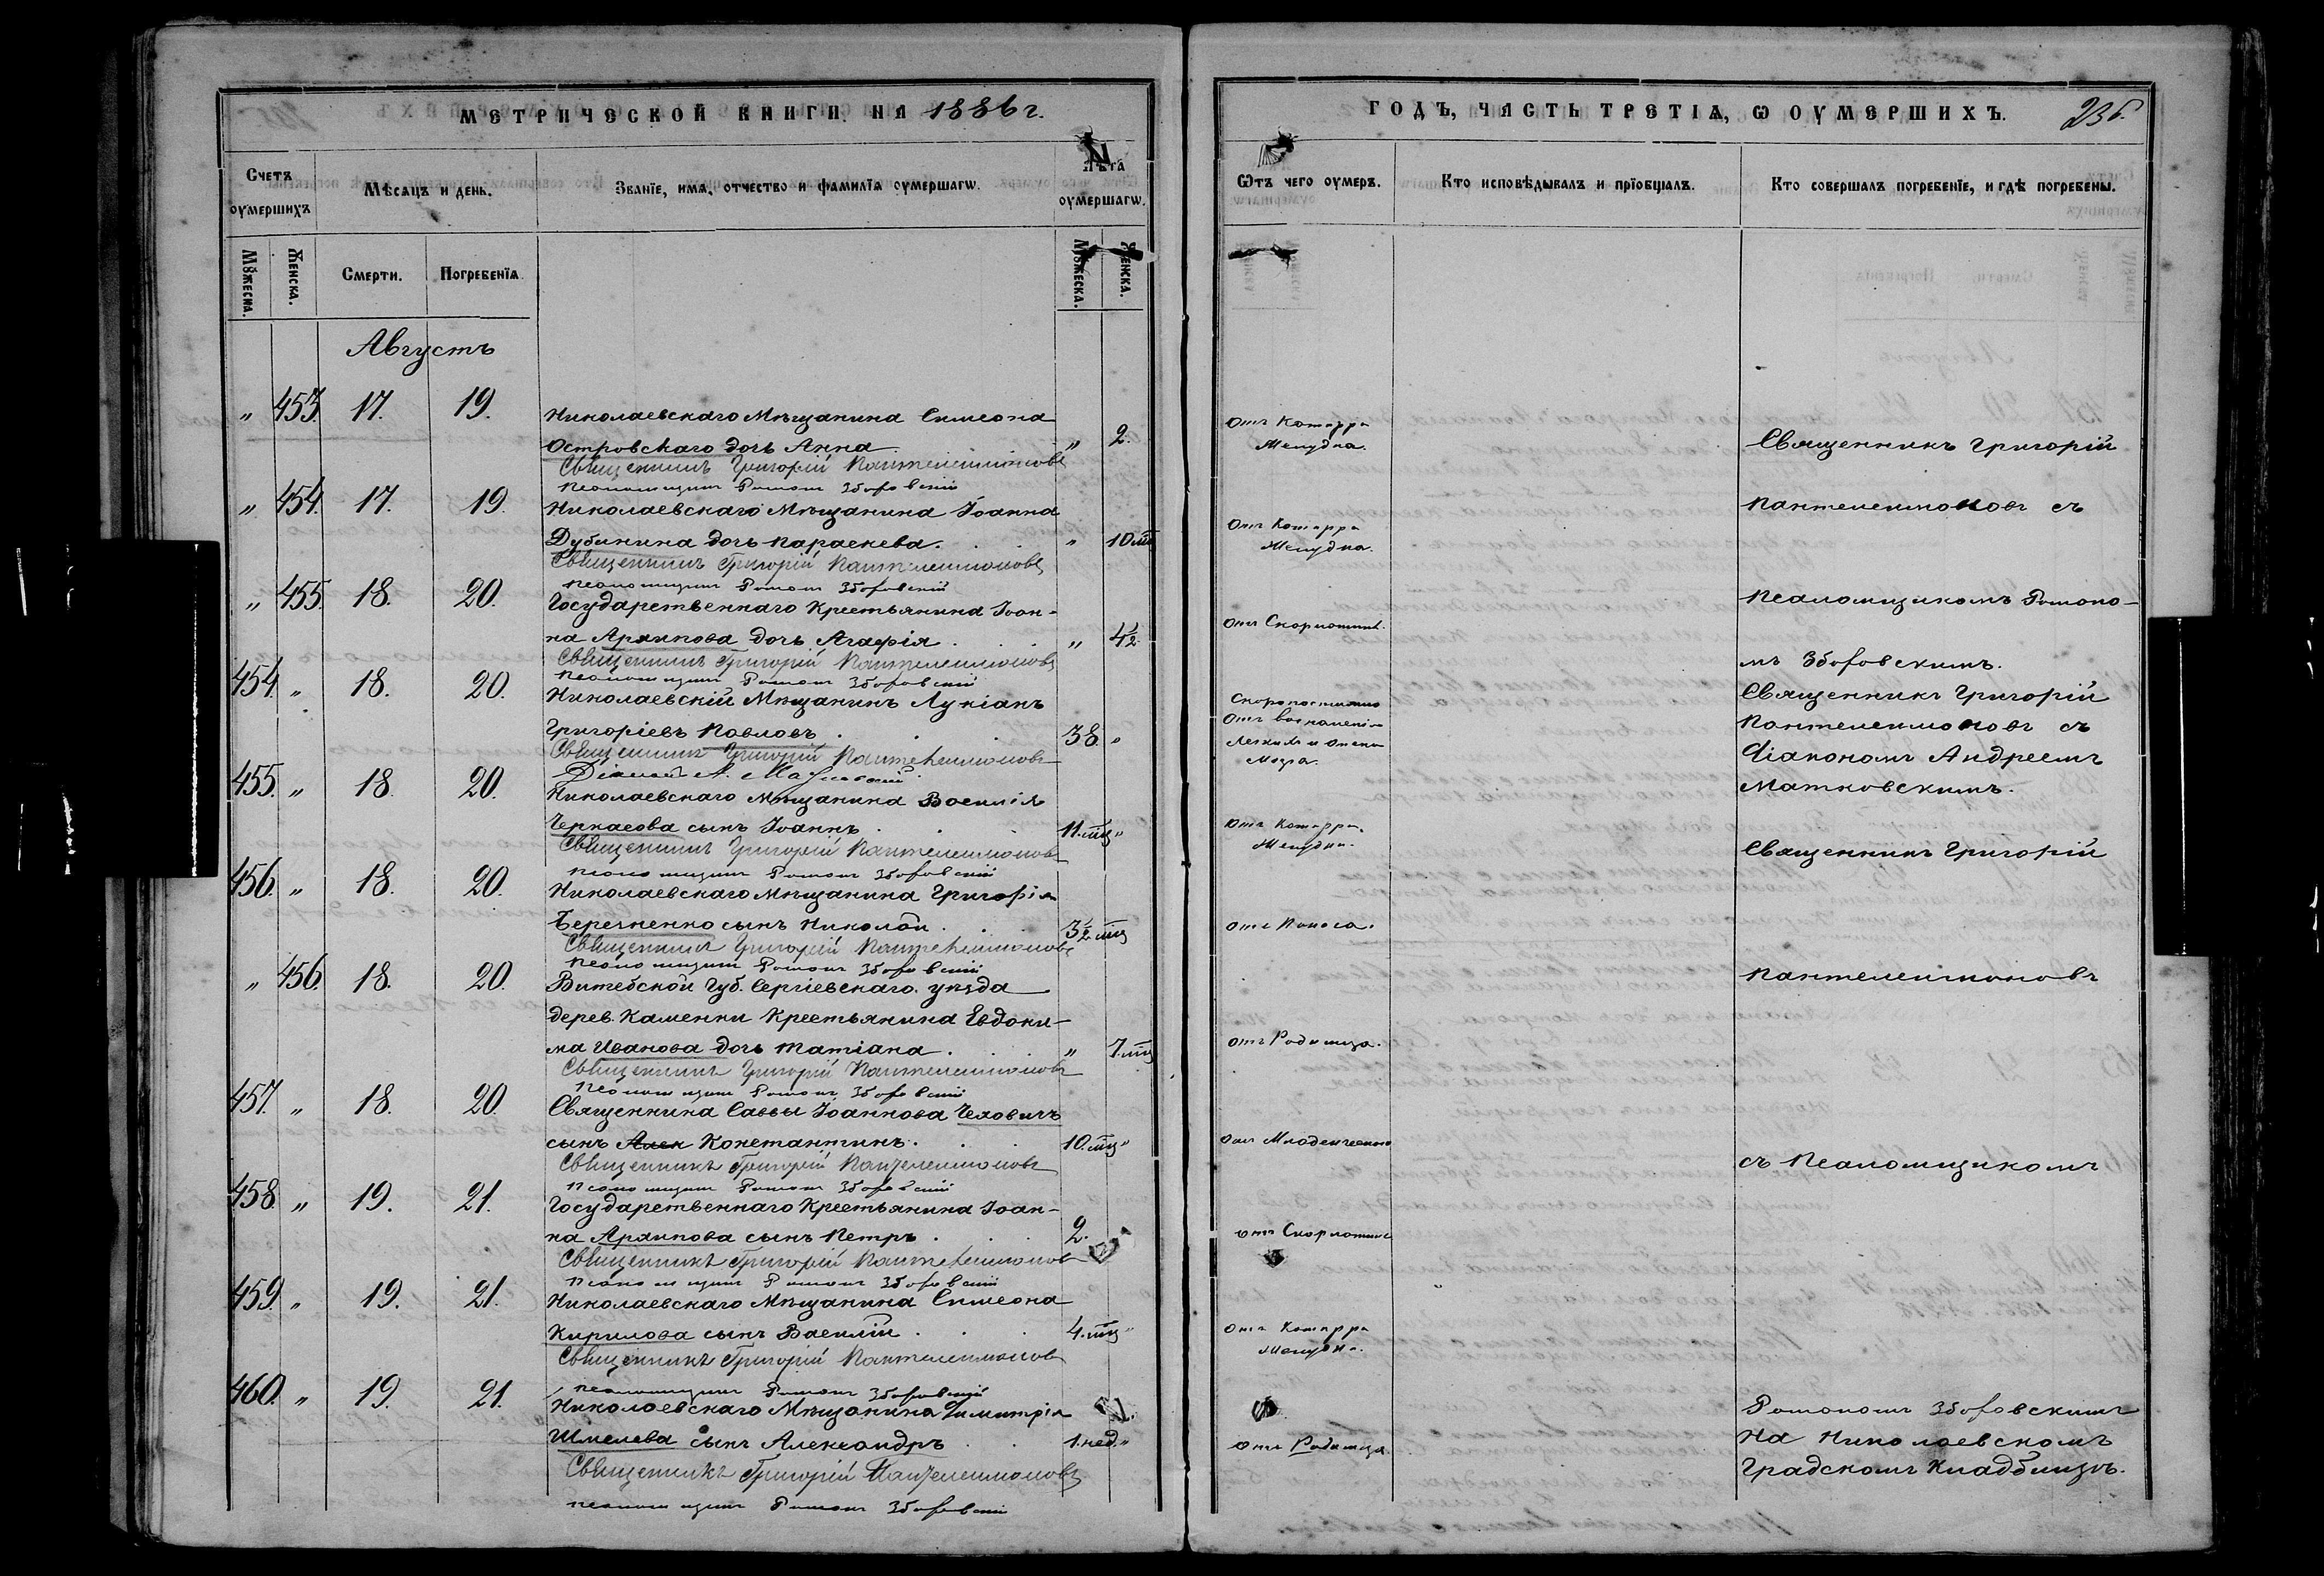 МЕТРИЧЕСКОЙ КНИГИ НА 1886 г.
Счетъ оумершихъ
Мѣсяцъ и день.
Званїе, имя, отчество и фамилїя оумершагѡ.
Лѣта оумершагѡ.
Мꙋжеска.
Женска.
Смерти.
Погребенїя
Мꙋжеска.
Женска.
Августъ
" 453. 17. 19. Николаевскаго Мѣщанина Симеона
Островскаго дочь Анна " 2.
Священникъ Григорій Пантелеимоновъ
Псаломщикъ Романъ Зборовскій
" 454. 17. 19. Николаевскаго Мѣщанина Іоанна
Дубинина дочь Параскева. " 10 мц
Священникъ Григорій Пантелеимоновъ
Псаломщикъ Романъ Зборовскій
" 455. 18. 20. Государственнаго Крестьянина Іоан-
на Архипова дочь Агафія " 4½
Священникъ Григорій Пантелеимоновъ
Псаломщикъ Романъ Зборовскій
454. " 18. 20. Николаевскій Мѣщанинъ Лукіанъ
Григоріевъ Павловъ 38. "
Священникъ Григорій Пантелеимоновъ
Діаконъ А. Матковскій
455. " 18. 20. Николаевскаго Мѣщанина Василія
Черкасова сынъ Іоаннъ 11. мц "
Священникъ Григорій Пантелеимоновъ
Псаломщикъ Романъ Зборовскій
456. " 18. 20. Николаевскаго Мѣщанина Григорія
Березненко сынъ Николай 3½ мц
Священникъ Григорій Пантелеимоновъ
Псаломщикъ Романъ Зборовскій
" 456. 18. 20. Витебской Губ. Сергіевскаго уѣзда
дерев. Каменки Крестьянина Евдоки-
ма Иванова дочь Татіана " 7. мц
Священникъ Григорій Пантелеимоновъ
Псаломщикъ Романъ Зборовскій
457. " 18. 20. Священника Саввы Іоаннова Чеховичъ
сынъ Алек Константинъ. 10. мц "
Священникъ Григорій Пантелеимоновъ
Псаломщикъ Романъ Зборовскій
458. " 19. 21. Государственнаго Крестьянина Іоан-
на Архипова сынъ Петръ 2.
Священникъ Григорій Пантелеимоновъ
Псаломщикъ Романъ Зборовскій
459. " 19. 21. Николаевскаго Мѣщанина Симеона
Кирилова сынъ Василій 4. мц "
Священникъ Григорій Пантелеимоновъ
Псаломщикъ Романъ Зборовскій
460. " 19. 21. Николаевскаго Мѣщанина Димитрія
Шмелева сынъ Александръ 1. нед. "
Священникъ Григорій Пантелеимоновъ
Псаломщикъ Романъ Зборовскій
ГОДЪ, ЧАСТЬ ТРЕТІѦ, Ѡ ОУМЕРШИХЪ.
Ѿтъ чего оумеръ.
Кто исповѣдывалъ и прїобщалъ.
Кто совершалъ погребенїе, и гдѣ погребены.
Отъ Катарра
Желудка.
Священникъ Григорій
Пантелеимоновъ съ
Отъ Катарра
Желудка.
Псаломщикомъ Романо-
Отъ Скорлотины.
мъ Зборовскимъ.
Скоропостижно
Отъ воспаленія
Легкихъ и Отека
Мозга.
Священникъ Григорій
Пантелеимоновъ съ
Діакономъ Андреемъ
Матковскимъ.
Отъ Катарра
Желудка.
Священникъ Григорій
Отъ Поноса.
Пантелеимоновъ
Отъ Родимца.
Отъ Младенческаго
съ Псаломщикомъ
Отъ Скорлотины
Отъ Катарра
Желудка.
Романомъ Зборовскимъ
На Николаевскомъ
Отъ Родимца.
Градскомъ Кладбищѣ.